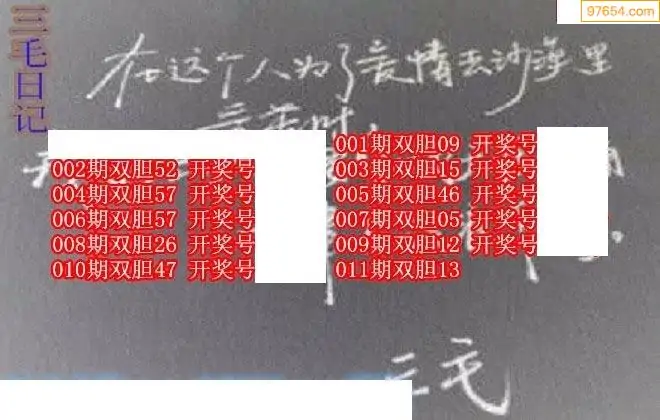 97654.com
三毛日记
在这个人为了爱情去沙漠里
001期双胆09 开奖号
002期双胆52 开奖号
003期双胆15 开奖号
004期双胆57 开奖号
005期双胆46 开奖号
006期双胆57 开奖号
007期双胆05 开奖号
008期双胆26 开奖号
009期双胆12 开奖号
010期双胆47 开奖号
011期双胆13
三毛